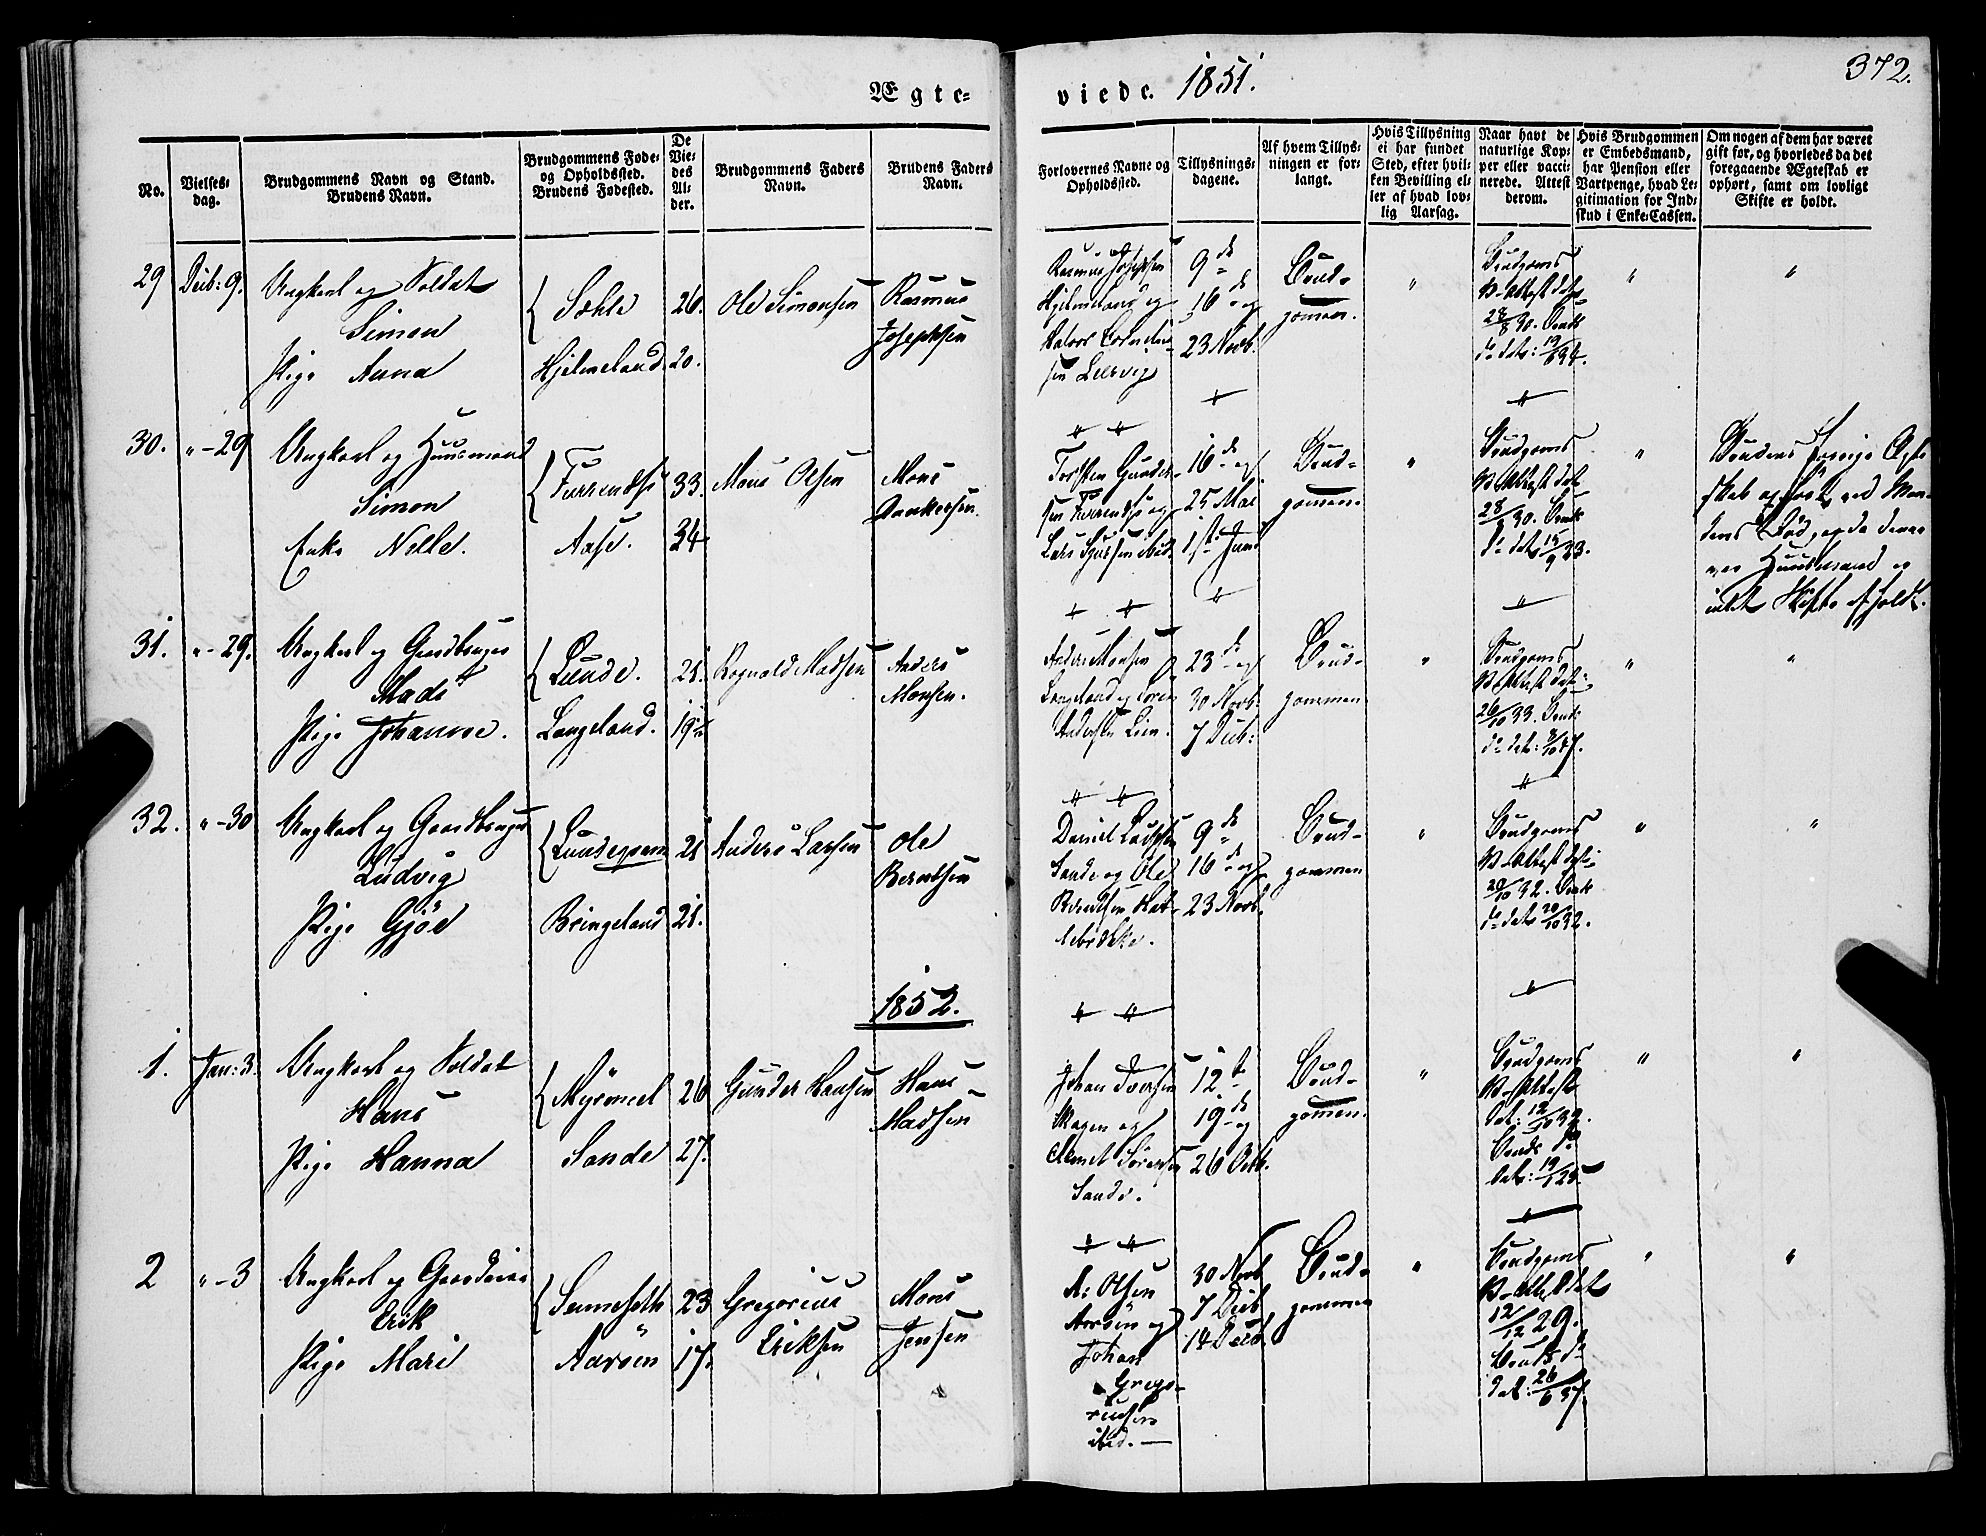 372.
Ægte-
viede. 1851.
No.
Vielses-
dag.
Brudgommens Navn og Stand.
Brudens Navn.
Brudgommens Føde-
og Opholdssted.
Brudens Fødested.
De
Vie-
des
Al-
der.
Brudgommens Faders
Navn.
Brudens Faders
Navn.
Forlovernes Navne og
Opholdssted.
Tillysnings-
dagene.
Af hvem Tillys-
ningen er for-
langt.
Hvis Tillysning
ei har fundet
Sted, efter hvil-
ken Bevilling el-
ler af hvad lov-
lig Aarsag.
Naar havt de
naturlige Kop-
per eller vacci-
nerede. Attest
derom.
Hvis Brudgommen
er Embedsmand,
har Pension eller
Vartpenge, hvad Le-
gitimation for Ind-
skud i Enke-Cassen.
Om nogen af dem har været
gift før, og hvorledes da det
foregaaende Ægteskab er
ophørt, samt om lovligt
Skifte er holdt.
29 Decb: 9. Ungkarl og Soldat
Simon
Pige Anna
Sæhle 26.
Hjelmeland 20.
Ole Simonsen
Rasmus
Josephsen
Rasmus Josephsen
Hjelmeland og
Leervig
9de
16de og
23 Novb.
Brud-
gomen.
Brudgoms
V-Attest dat:
28/8 30. Bruds
do dat: 19/ 34.
30. " - 29 Ungkarl og Huusmand
Simon
Enke Nelle.
33.
Aase. 34
Mons Olsen
Mons
Torsten Gunder-
sen og
Lars ibid.
16de og
25 Mai
1ste Juni
Brud-
gomen
Brudgoms
V-Attest dat
28/ 30. Bruds
do dat 15/9 23.
Brudens forrige Ægte-
skab ophørt ved Man-
dens Død, og da denne
var Huusmand er
intet Skifte afholdt.
31. " - 29. Ungkarl og Gaardbruger
Mads
Pige Johanne.
Lunde. 21.
Langeland. 19
Rognald Madsen
Anders
Monsen.
Anders Monsen
Langeland og
Andersen
23de og
30 Novb.
7 Decb:
Brud-
gommen
Brudgoms
V-Attest dat:
26/10 33. Bruds
do dat: 8/10 47.
32. " - 30 Ungkarl og Gaardbruger
Ludvig
Pige Gjöe
21
Bringeland 21.
Anders Larsen
Ole
Berntsen
Daniel
Sande og Ole
Berentsen Hat-
lebrekke.
9de
16de og
23 Novb.
Brud-
gommen
Brudgoms
V-Attest dat:
20/10 32. Bruds
do dat 20/10 32.
1852.
1. Jan: 3. Ungkarl og Soldat
Hans
Pige Hanna
Myrmeel 26
Sande 27.
Gunder Hansen
Hans
Madsen
Johan Iversen
Skagen og
Sørensen
Sande.
12te
19de og
26 Octb.
Brud-
gomen.
Brudgoms
V-Attest
dat: 12/10 32.
Bruds do
dat: 19/ 25
2 " - 3 Ungkarl og
Erik
Pige Mari
23
Aarsen 17.
Gregorius
Eriksen
Mons
Jensen
A: Olsen
og
Johan
Grego-
riusen
ibid.
30 Novb
7 Decb
14 Decb.
Brud-
gommen
Brudgoms
V-Attest dat
12/12 29.
Bruds do
dat: 26/6 37.